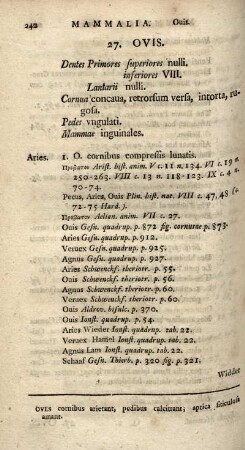 242 MAMMALIA. Ouis.
27. OVIS.
Dentes Primores superiores nulli.
inferiores VIII.
Laniarii nulli.
Cornua concaua, retrorsum versa, intorta, ru-
gosa.
Pedes vngulati.
Mammae inguinales.
Aries. 1. O. cornibus compressis lunatis.
Προβατον Arist. hist. anim. V c. 11 n. 134. VI c. 19 n
250-263. VIII c. 13 n. 118-123. IX c. 4 n.
70-74.
Pecus, Aries, Ouis Plin. hist. nat. VIII c. 47, 48 (s.
72-75 Hard.).
Προβατον Aelian. anim. VII c. 27.
Ouis Gesn. quadrup. p. 872 fig. cornutae p. 873.
Aries Gesn. quadrup p. 912.
Veruex Gesn. quadrup. p. 925.
Agnus Gesn. quadrup. p. 927.
Aries Schwenckf. theriotr. p. 55.
Ouis Schwenckf. theriotr. p. 56.
Agnus Schwenckf. theriotr. p. 60.
Veruex Schwenckf. theriotr. p. 60.
Ouis Aldrov. bisulc. p. 370.
Ouis Ionst. quadrup. p. 54.
Aries Wieder Ionst. quadrup. tab. 22.
Veruex Hamel Ionst. quadrup. tab. 22.
Agnus Lam Ionst. quadrup. tab. 22.
Schaaf Gesn. Thierb. p. 320 fig. p. 321.
Widder
OVES cornibus arietant, pedibus calcitrant; aprica, siticulosa
amant.